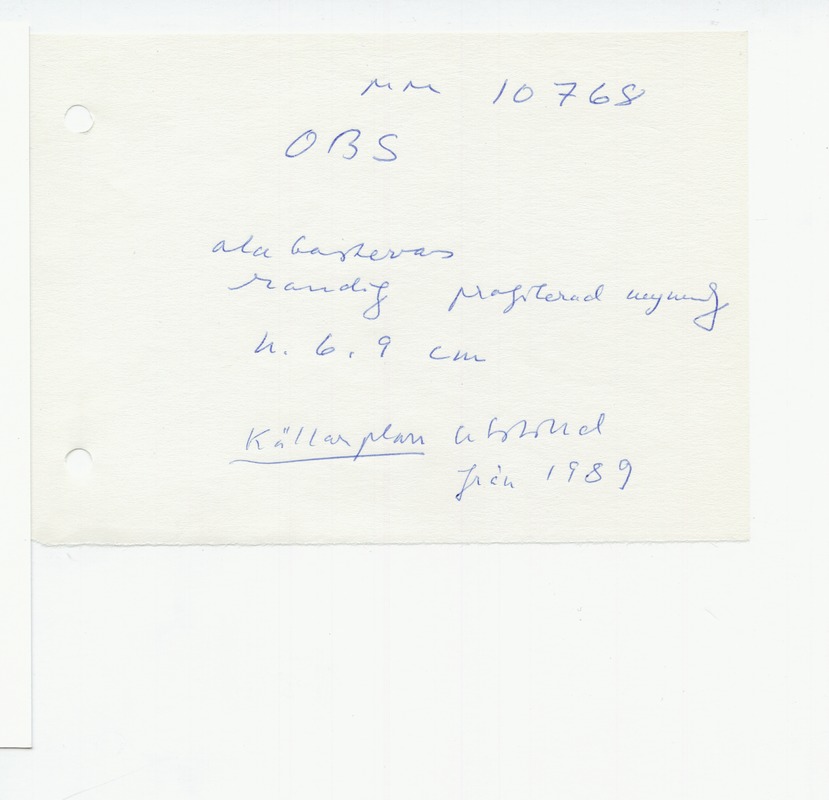 MM 10768
OBS
alabastervas
randig profilerad mynning
h. 6.9 cm
Källarplan utställd
från 1989